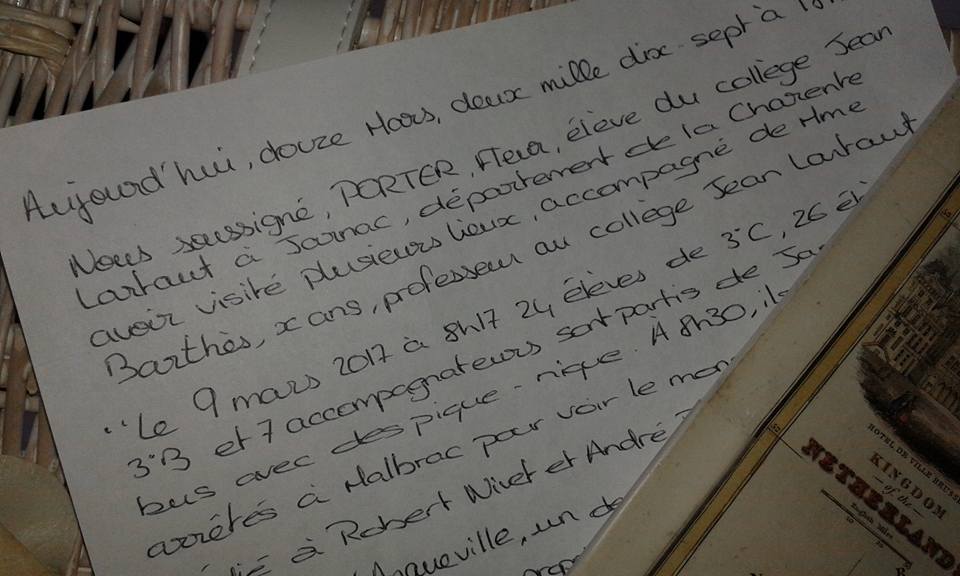 Aujourd'hui, douze Mars, deux mille dix-sept à
Nous soussigné, PORTER, Fleur, élève du collège Jean
Lartaut à Jarnac, département de la Charente
avoir visité plusieurs lieux, accompagné de Mme
Barthès, x ans, professeur au collège Jean Lartaut
"Le 9 mars 2017 à 8h17 24 élèves de 3°C, 26
3°B et 7 accompagnateurs sont partis de
bus avec des pique-nique. À 8h30, ils
arrêtés à Malbrac pour voir le
à Robert Nivet et André
un
HOTEL DE VILLE
KINGDOM
of the
NETHERLAND
English Miles